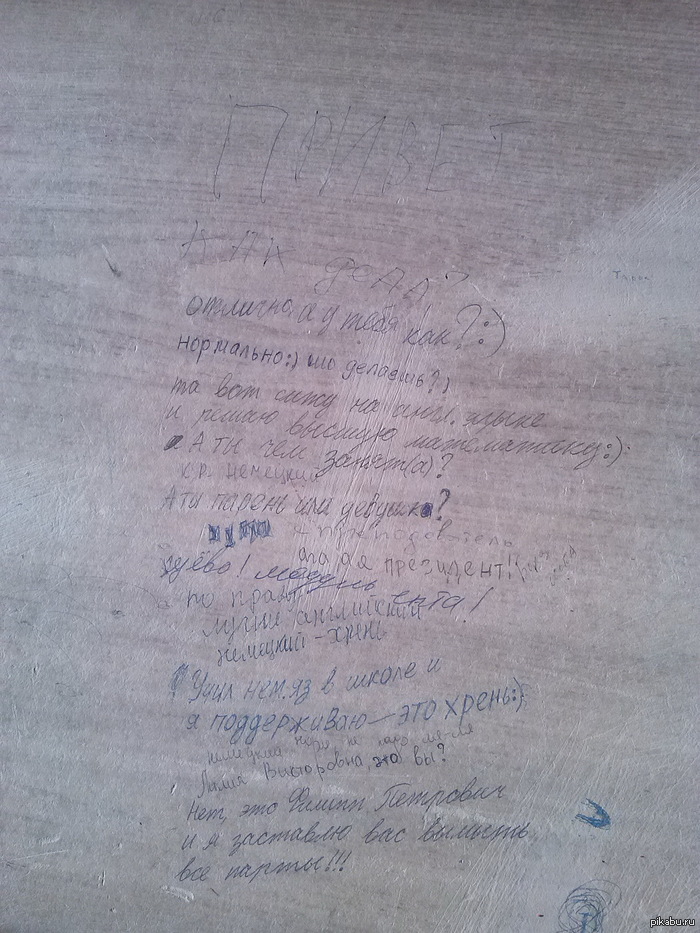 ПРИВЕТ
КАК ДЕЛА?
отлично, а у тебя как? :)
нормально:) шо делаешь?)
та вот сижу на англ. языке
и решаю высшую математику:)
А ты чем занят(а)?
к.р. немецкий
А ты парень или девушка?
я преподователь
ага да я президент!
по
лучше английский
немецкий - хрень
Учил нем.яз в школе и
я поддерживаю — это хрень:)
Викторовна, это вы?
Нет, это Филипп Петрович
и я заставлю вас вымыть
все парты!!!
pikabu.ru